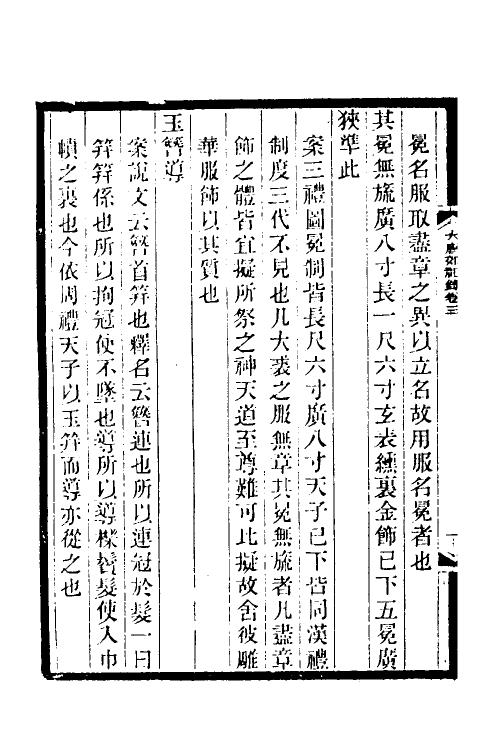 大唐郊祀錄卷三
冕名服取盡章之異以立名故用服名冕者也
其冕無旒廣八寸長一尺六寸玄表纁裏金飾已下五冕廣
狹準此
案三禮圖冕制皆長尺六寸廣八寸天子已下皆同漢禮
制度三代不見也凡大裘之服無章其冕無旒者凡盡章
飾之體皆宜擬所祭之神天道至尊難可比擬故舍彼雕
華服飾以其質也
玉簪導
案說文云簪首筓也釋名云簪連也所以連冠於髮一曰
筓筓係也所以拘冠使不墜也導所以導櫟鬢髮使入巾
幘之裏也今依周禮天子以玉筓而導亦從之也